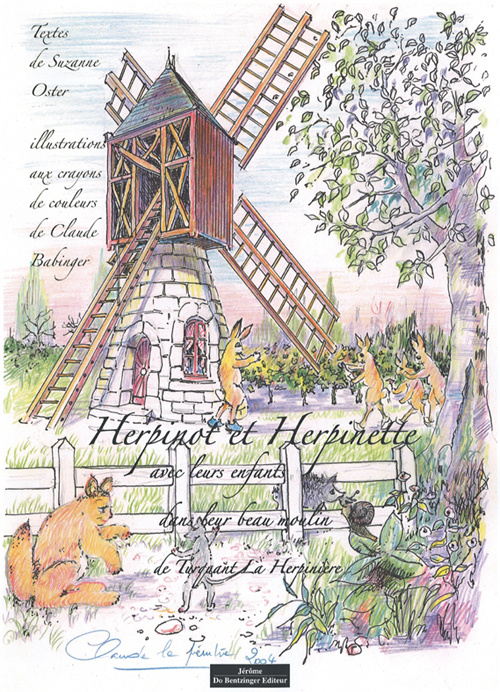 Textes
de Suzanne
Oster
illustrations
aux crayons
de couleurs
de Claude
Babinger
Herpinot et Herpinette
avec leurs enfants
dans leur beau moulin
de Turquant La Herpinière
Claude le peintre 2004
Jérôme
Do Bentzinger Editeur